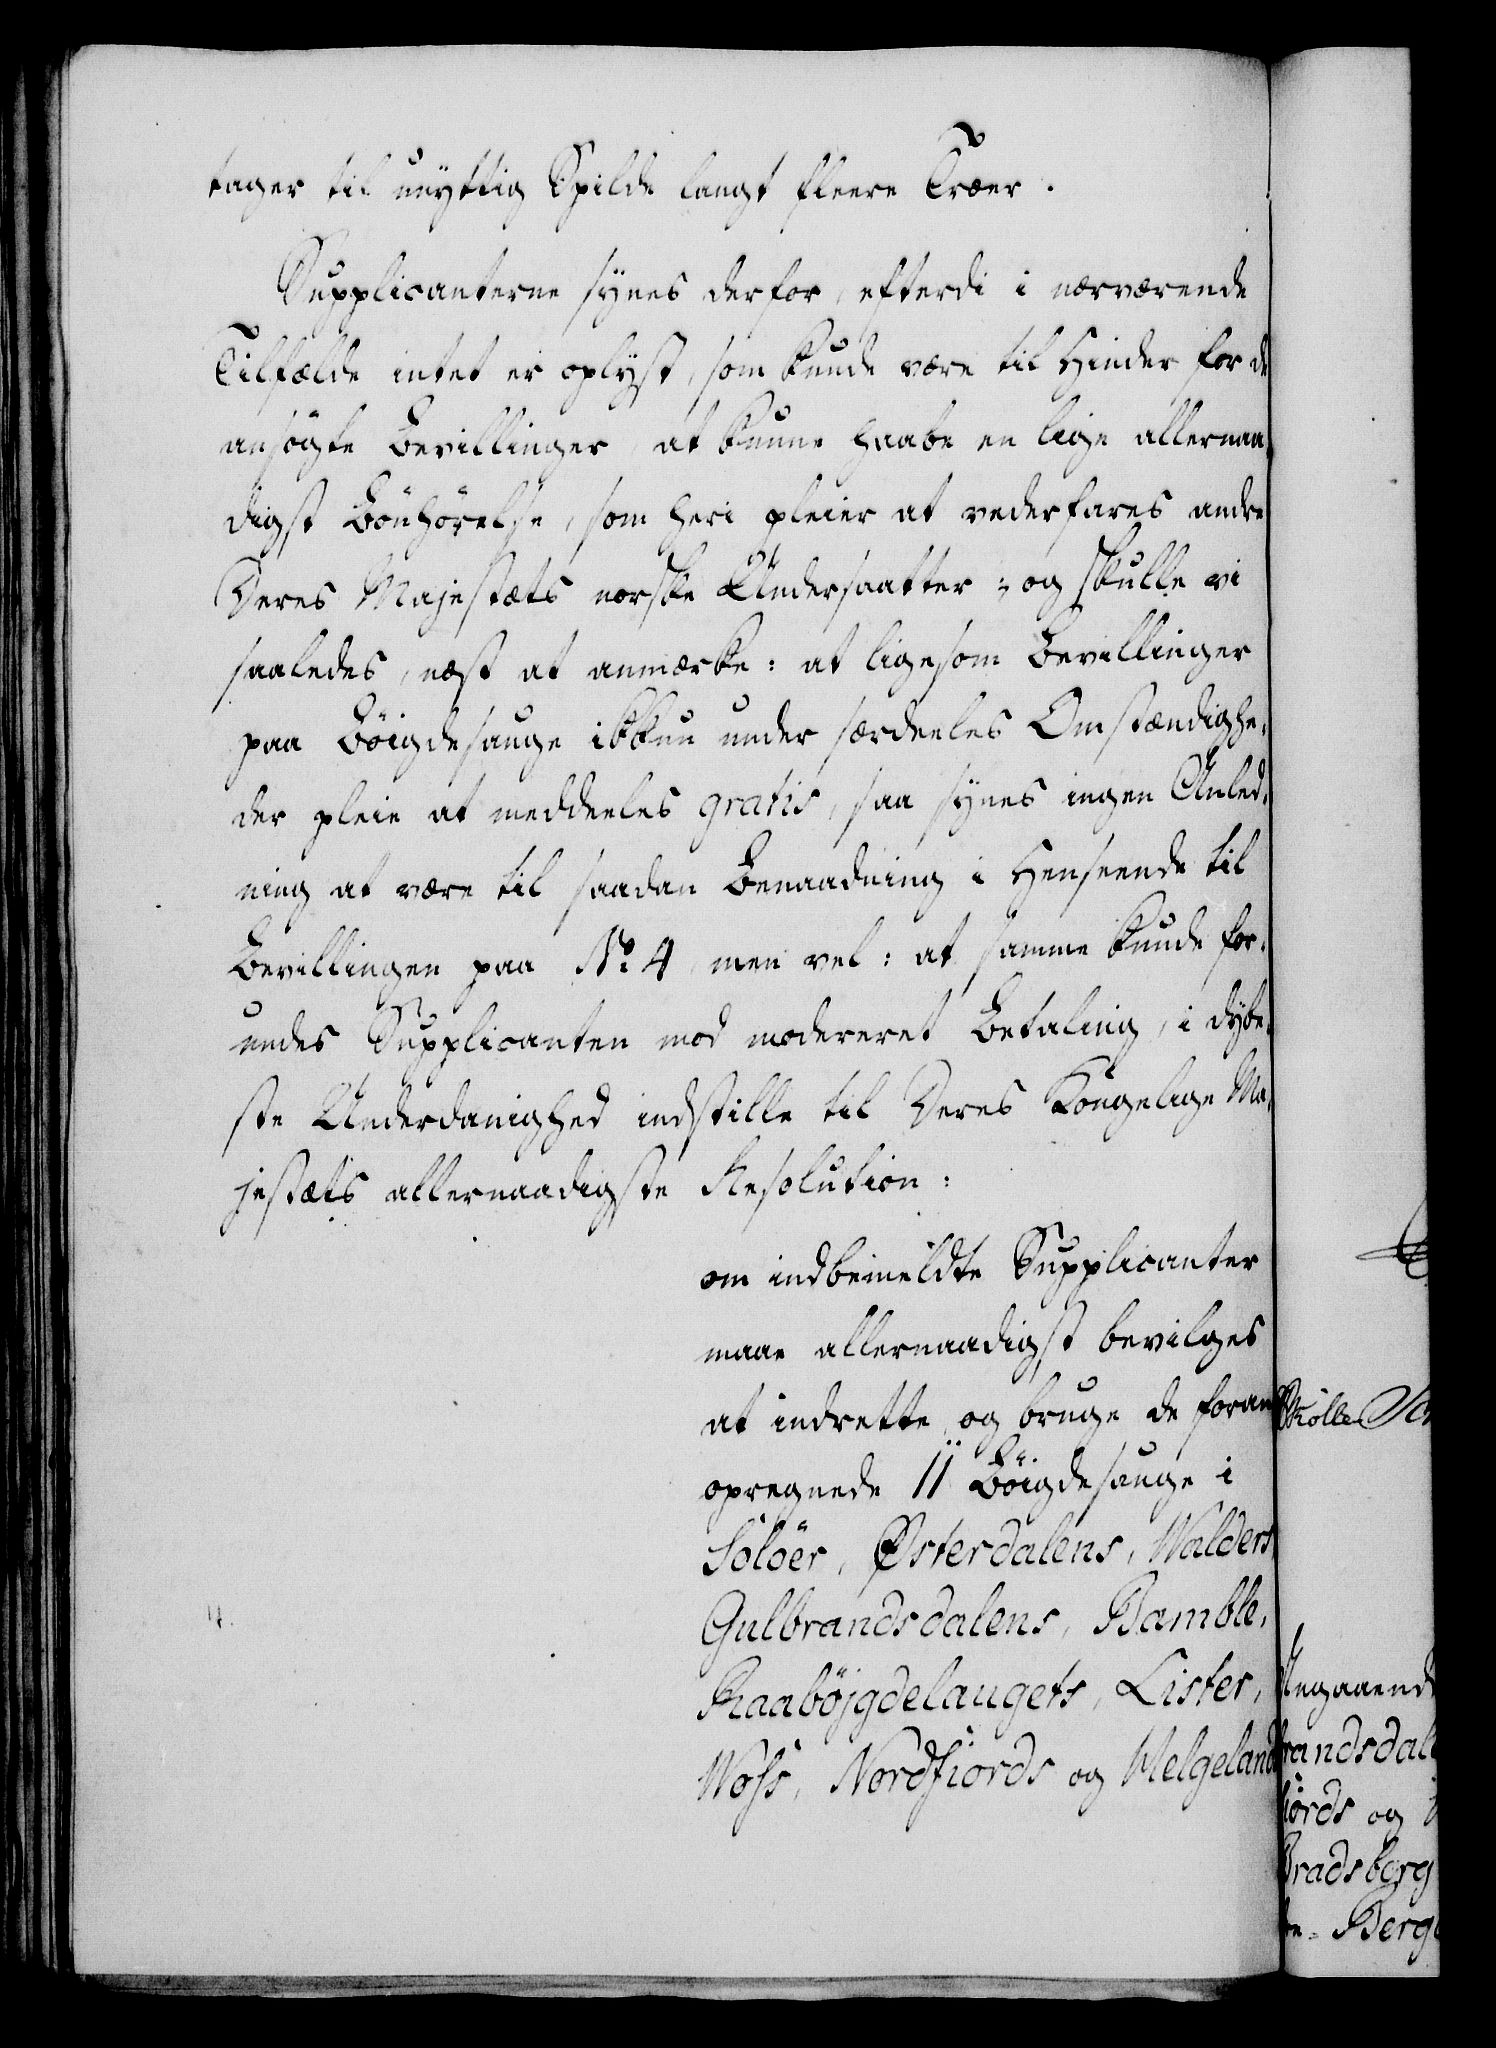 tager til unyttig Spilde langt fleere Træer.
Supplicanterne synes derfor, efterdi i nærværende
Tilfælde intet er oplyst, som kunde være til Hinder for de
ansøgte Bevillinger, at kunne haabe en lige allernaa-
digst Bönhörelse, som heri pleier at vederfares andre
Deres Majestæts norske Undersaatter; og skulle vi
saaledes, næst at anmærke: at ligesom Bevillinger
paa Böigdesauge ikkun under særdeeles Omstændighe-
der pleie at meddeeles gratis, saa synes ingen Anled-
ning at være til saadan Benaadning i Henseende til
Bevillingen paa No. 4, men vel: at samme kunde for-
undes Supplicanten mod modereret Betaling, i dybe-
ste Underdanighed indstille til Deres Kongelige Ma-
jestæts allernaadigste Resolution:
om indbemeldte Supplicanter
maae allernaadigst bevilges
at indrette og bruge de foran
opregnede 11 Böigdesauge i
Solöer, Østerdalens, Walders,
Gulbrandsdalens, Bamble,
Raabøjgdelaugets, Lister,
Woss, Nordfiords og Helgeland